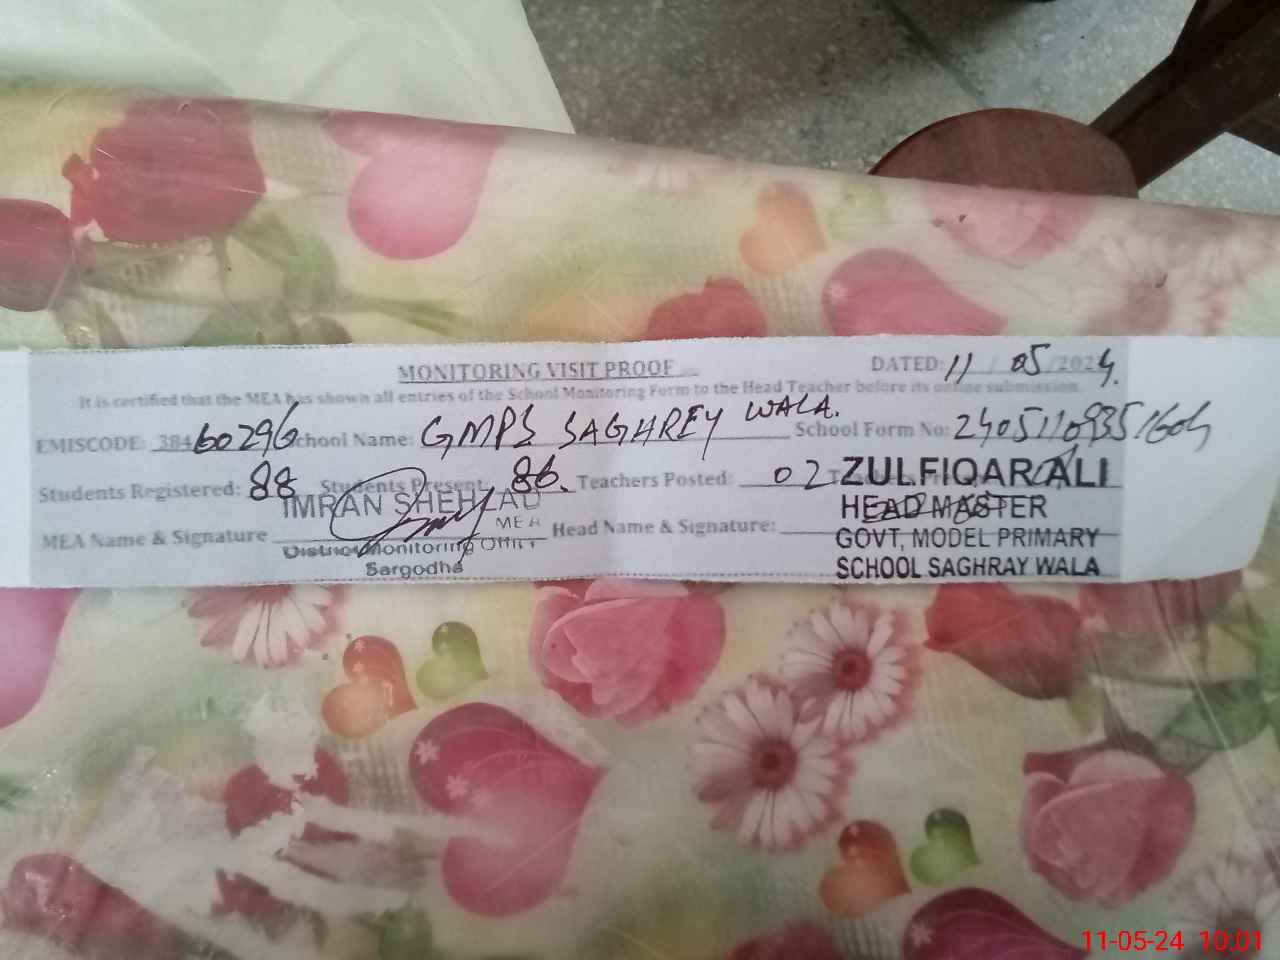 MONITORING VISIT PROOF DATED: 11 / 05 /2024.
It is certified that the MEA has shown all entries of the School Monitoring Form to the Head Teacher before its online submission.
EMISCODE: 38460296 School Name: GMPS SAGHREY WALA. School Form No:
Students Registered: 88 Students Present: 86. Teachers Posted: 02
ZULFIQAR ALI
IMRAN SHEHZAD
HEAD MASTER
MEA
MEA Name & Signature Head Name & Signature:
GOVT, MODEL PRIMARY
District Monitoring Officer
SCHOOL SAGHRAY WALA
Sargodha
11-05-24 10:01